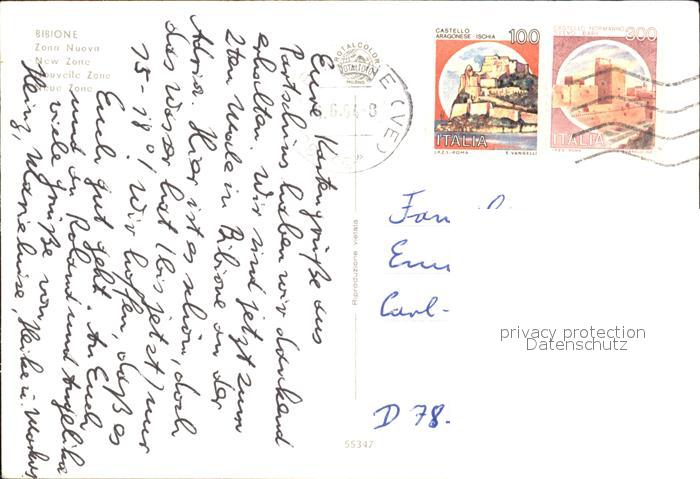 BIBIONE
Zona Nuova
New Zone
Nouvelle Zone
Neue Zone
Eure Kartengrüße aus
Partschins haben wir dankend
erhalten. Wir sind jetzt zum
2ten Male in Bibione an der
Adria. Hier ist es schön, doch
das Wasser hat (bis jetzt) nur
15-18°! Wir hoffen, daß es
Euch gut geht. An Euch
und an Roland und Angelika
viele Grüße von
Heinz, Marieluise, Heike u. Markus
ROTALCOLOR
MILANO
Riproduzione vietata
55347
E (VE)
CASTELLO
ARAGONESE · ISCHIA
100
ITALIA
I.P.Z.S. - ROMA
E. VANGELLI
CASTELLO NORMANNO
SVEVO BARI
300
ITALIA
Fam
Carl-
D 78.
privacy protection
Datenschutz